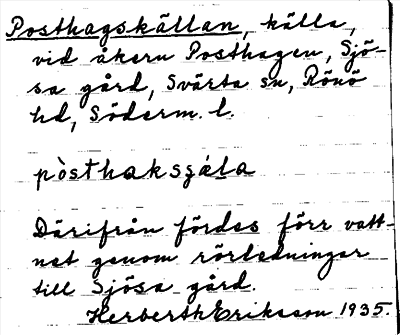 Posthagskällan, källa,
vid åkern Posthagen, Sjö-
sa gård, Svärta sn, Rönö
hd, Söderm. l.
pòsthakszála
Därifrån fördes förr vatt-
net genom rörledningar
till Sjösa gård.
Herberth Eriksson 1935.